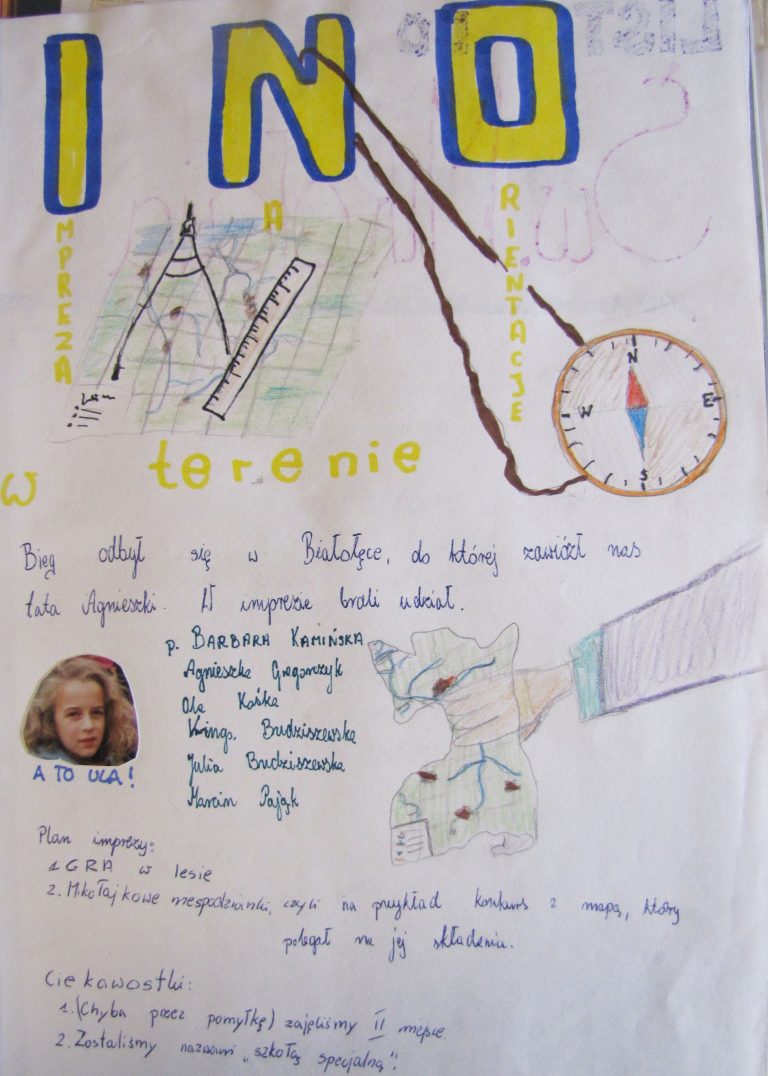 INO
IMPREZA
NA
ORIENTACJE
w terenie
N
W
E
S
Bieg odbył się w Białołęce, do której zawiózł nas
tata Agnieszki. W imprezie brali udział.
p. BARBARA KAMIŃSKA
Agnieszka Gregorczyk
Ola Kośka
Kinga Budziszewska
Julia Budziszewska
Marcin Pająk
A TO ULA!
Plan imprezy:
1. GRA w lesie
2. Mikołajkowe niespodzianki, czyli na przykład konkurs z mapą, który
polegał na jej składaniu.
Ciekawostki:
1. (Chyba przez pomyłkę) zajęliśmy II miejsce.
2. Zostaliśmy nazwani „szkołą specjalną".